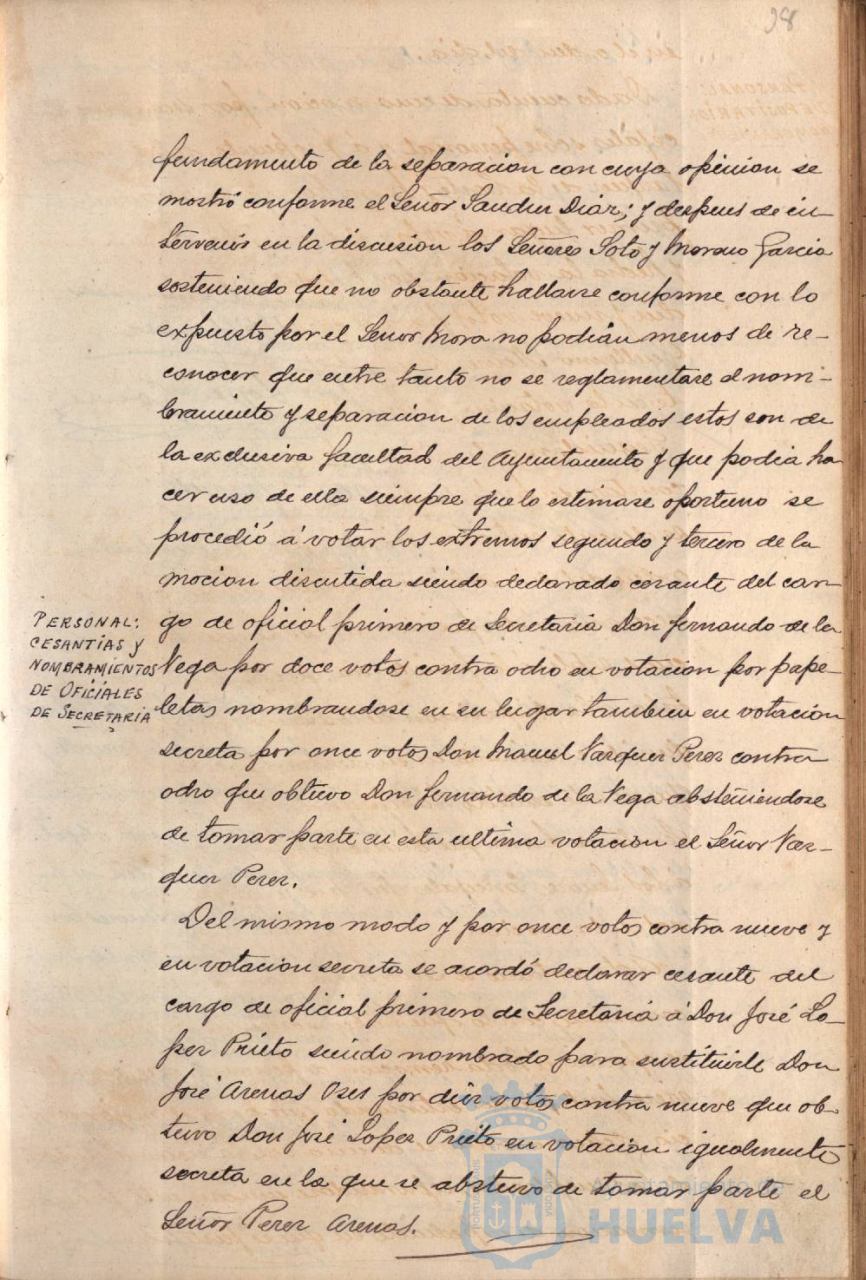 98
fundamento de la separacion con cuya opinion se
mostró conforme el Señor Sanchez Diaz; y despues de in
tervenir en la discusion los Señores Soto y Moreno Garcia
sosteniendo que no obstante hallarse conforme con lo
expuesto por el Señor Mora no podian menos de re-
conocer que entre tanto no se reglamentase el nom-
bramiento y separacion de los empleados estos son de
la exclusiva facultad del Ayuntamiento y que podia ha
cer uso de ella siempre que lo estimase oportuno se
procedió á votar los extremos segundo y tercero de la
mocion discutida siendo declarado cesante del car-
go de oficial primero de Secretaria Don Fernando de la
Vega por doce votos contra ocho en votacion por pape-
letas nombrandose en su lugar tambien en votacion
secreta por once votos Don Manuel Vazquez Perez contra
ocho que obtuvo Don Fernando de la Vega absteniendose
de tomar parte en esta ultima votacion el Señor Vaz-
quez Perez.
PERSONAL:
CESANTÍAS Y
NOMBRAMIENTOS
DE OFICIALES
DE SECRETARIA
Del mismo modo y por once votos contra nueve y
en votacion secreta se acordó declarar cesante del
cargo de oficial primero de Secretaria á Don José Lo-
pez Prieto siendo nombrado para sustituirle Don
José Arenas por diez votos contra nueve que ob-
tuvo Don José Lopez Prieto en votacion igualmente
secreta en la que se abstuvo de tomar parte el
Señor Perez Arenas.
Ayuntamiento de
HUELVA